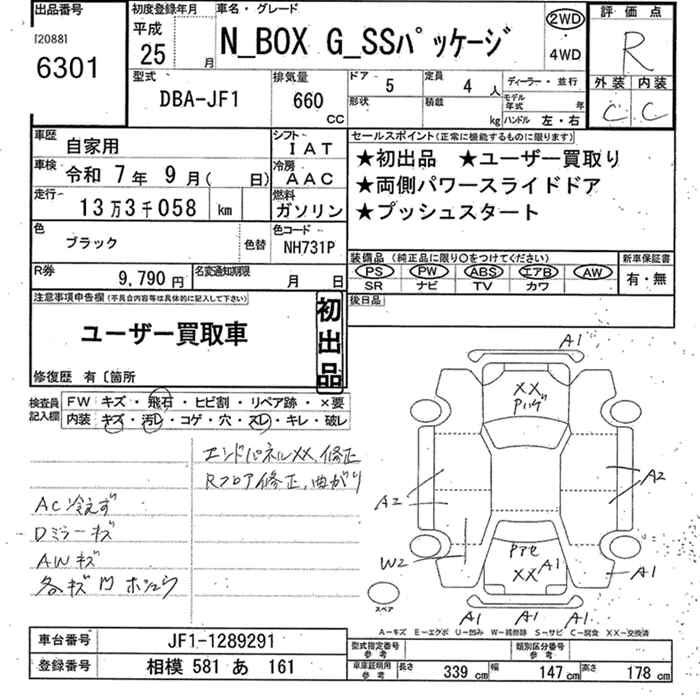 出品番号
[2088]
6301
初度登録年月
平成
25 月
車名・グレード
N_BOX G_SSパッケージ
2WD
4WD
評価点
R
外装 内装
C C
型式
DBA-JF1
排気量
660
CC
ドア 5
定員 4 人
形状
積載 kg
ディーラー・並行
モデル年式 年
ハンドル 左・右
車歴 自家用
車検 令和 7 年 9 月( 日)
走行 13万3千058 km
シフト IAT
冷房 AAC
燃料 ガソリン
セールスポイント(正常に機能するものに限ります)
★初出品 ★ユーザー買取り
★両側パワースライドドア
★プッシュスタート
色 ブラック
色替
色コード NH731P
装備品 (純正品に限り〇をつけてください)
PS PW ABS エアB AW
SR ナビ TV カワ
新車保証書
有・無
R券 9,790 円
名変通知期限 月 日
後日品
注意事項申告欄(不具合内容等は具体的に記入して下さい)
ユーザー買取車
初出品
修復歴 有〔箇所
検査員記入欄
FW キズ・飛石・ヒビ割・リペア跡・×要
内装 キズ・汚レ・コゲ・穴・スレ・キレ・破レ
エンドパネルXX、修正
Rフロア修正、曲がり
AC冷えず
Dミラーキズ
AWキズ
各キズ凹
A1
XX
Pハゲ
A2
A2
W2
Pアセ
XX
A1
A1
A1 A1 A1
スペア
A-キズ E-エクボ U-凹み W-補修跡 S-サビ C-腐食 XX-交換済
車台番号 JF1-1289291
登録番号 相模 581 あ 161
型式指定番号 参考
類別区分番号 参考
車庫証明用 参考
長さ 339 cm 幅 147 cm 高さ 178 cm